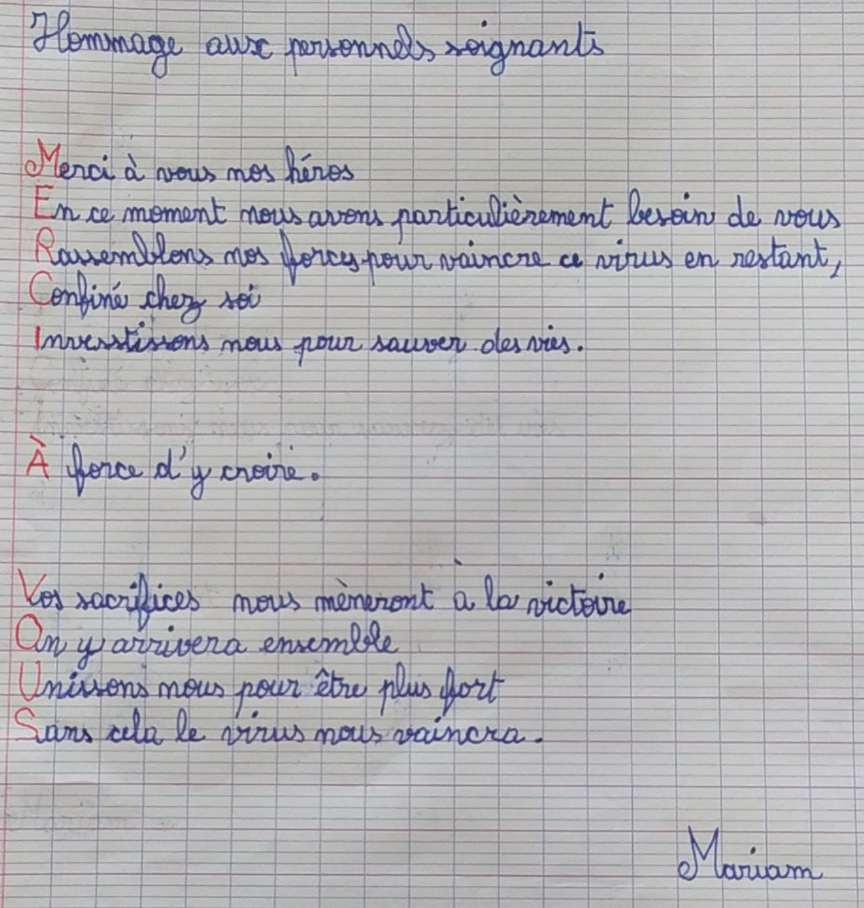 Hommage aux personnels soignants
Merci à vous nos héros
En ce moment nous avons particulièrement besoin de vous
Rassemblons nos forces pour vaincre ce virus en restant,
Confiné chez soi
Inverstissons nous pour sauver des vies.
À force d'y croire.
Vos sacrifices nous mèneront à la victoire
On y arrivera ensemble
Unissons nous pour être plus fort
Sans cela le virus nous vaincra.
Mariam